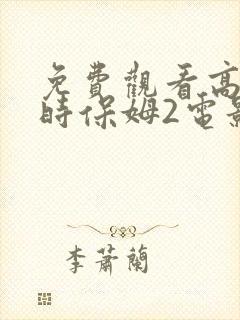 免費觀看高
時保姆2電影
李蕭蘭